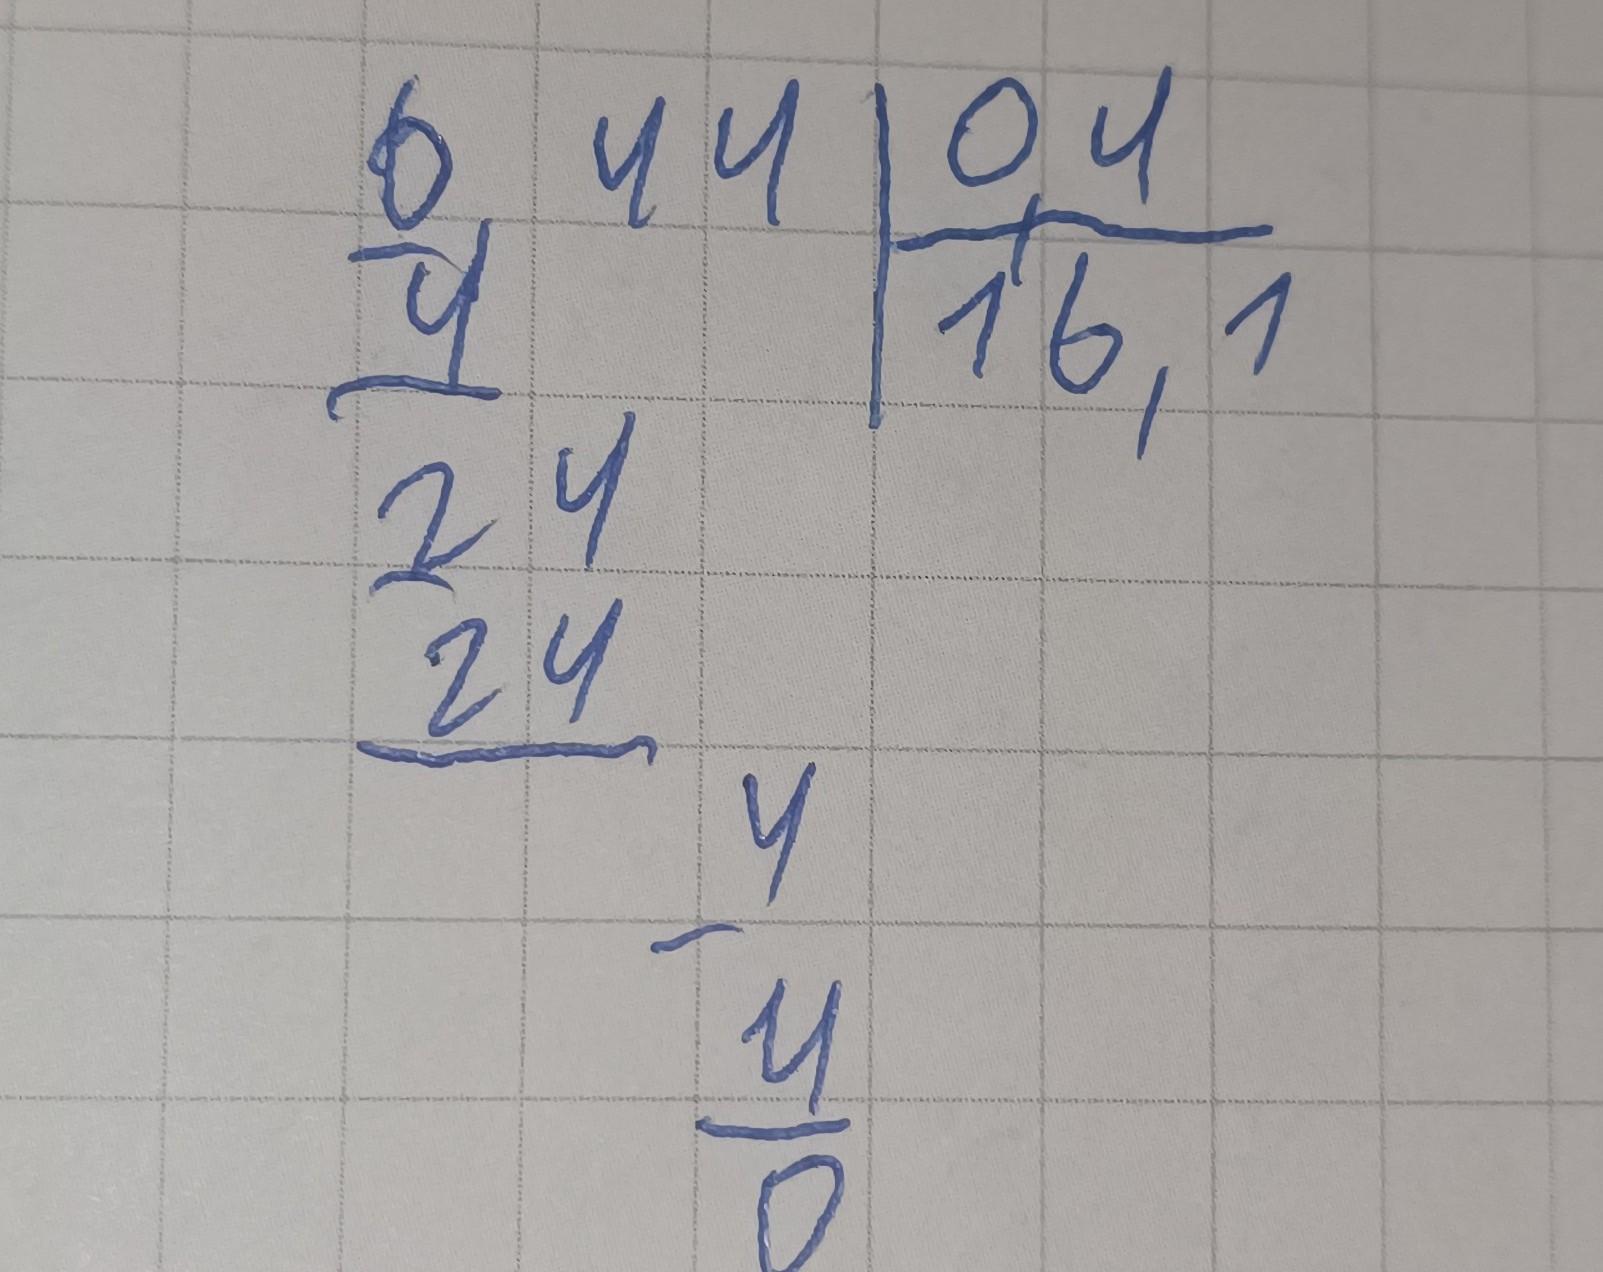 6,44 | 0,4
4 | 16,1
24
24
4
4
0